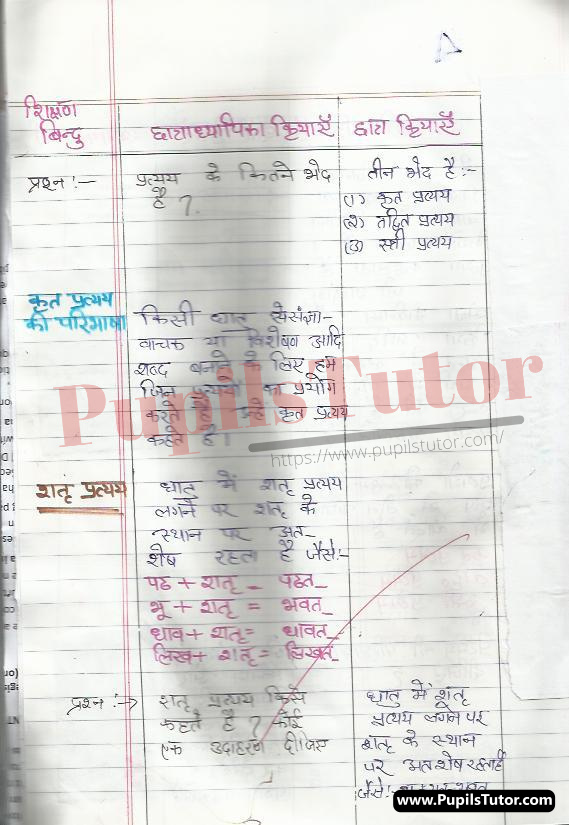 A
शिक्षण
बिन्दु
छात्राध्यापिका क्रियाएँ
छात्र क्रियाएँ
प्रश्न :-
प्रत्यय के कितने भेद
है ?
तीन भेद है :-
(1) कृत प्रत्यय
(2) तद्धित प्रत्यय
(3) स्त्री प्रत्यय
कृत प्रत्यय
की परिभाषा
किसी धातु से संज्ञा-
वाचक या विशेषण आदि
शब्द बनाने के लिए हम
जिन प्रत्ययों का प्रयोग
करते है उन्हे कृत प्रत्यय
कहते है।
PupilsTutor
https://www.pupilstutor.com/
शतृ प्रत्यय
धातु में शतृ प्रत्यय
लगने पर शतृ के
स्थान पर अत्
शेष रहता है जैसे:-
पठ + शतृ = पठत्
भू + शतृ = भवत्
धाव + शतृ = धावत्
लिख + शतृ = लिखत्
प्रश्न :->
शतृ प्रत्यय किसे
कहते है ? कोई
एक उदाहरण दीजिए
धातु में शतृ
प्रत्यय लगने पर
शतृ के स्थान
पर अत शेष रहता है
जैसे:-
www.PupilsTutor.Com